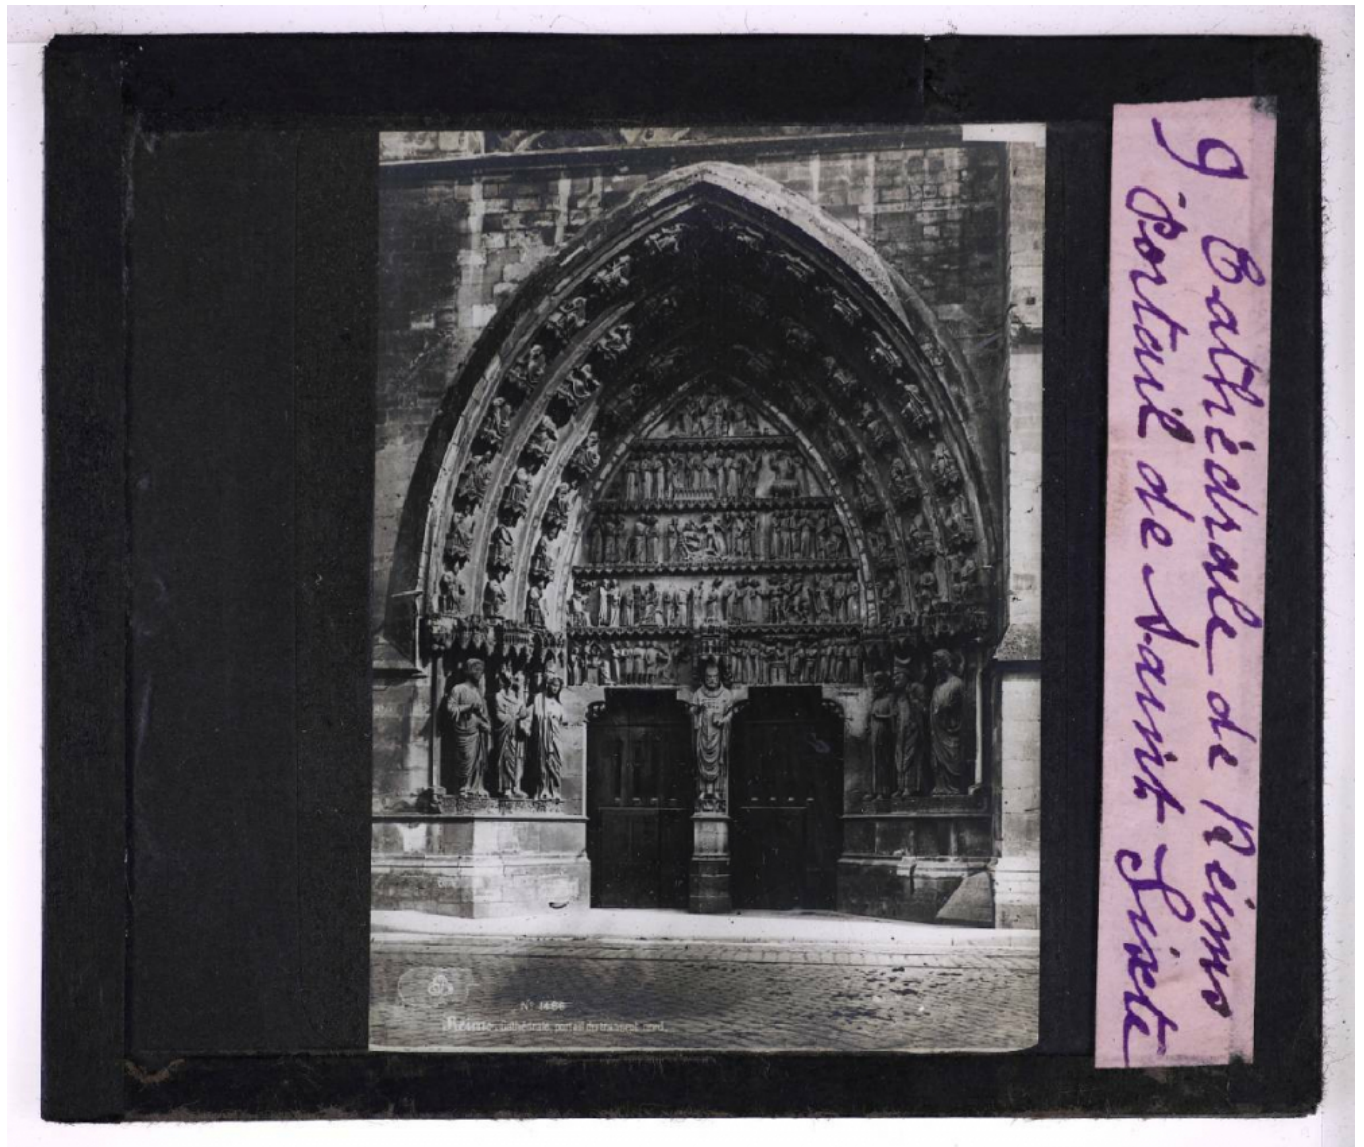 9 Cathédrale de Reims
Portail de Saint Sixte
Nº 1486
Reims, cathédrale, portail du transept nord.